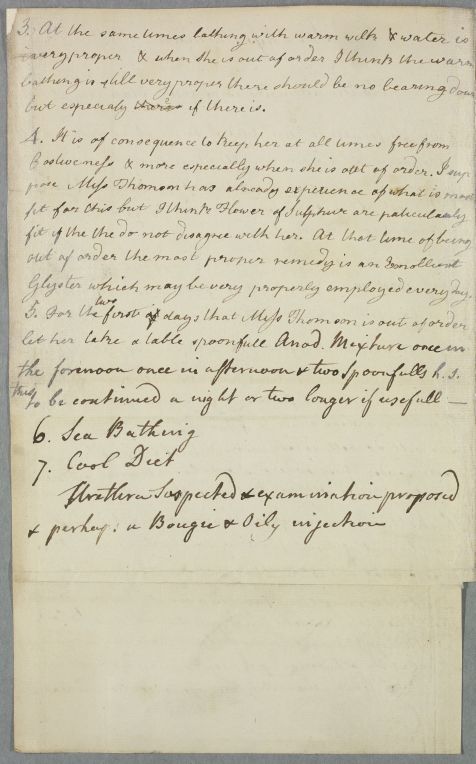 3. At the same times bathing with warm milk & water is
very proper & when she is out of order I think the warm
bathing is still very proper there should be no bearing down
but especialy if there is.
4. It is of consequence to keep her at all times free from
Costiveness & more especially when she is out of order. I sup
pose Miss Thomson has already experience of what is most
fit for this but I think Flower of Sulphur are paticularly
fit if the the do not disagree with her. At that time of being
out of order the most proper remedy is an Emollient
Glyster which may be very properly employed every day.
5. For the two first days that Miss Thomson is out of order
let her take a table spoonfull Anod. Mixture once in
the forenoon once in afternoon & two spoonfulls h. s.
this to be continued a night or two longer if usefull —
6. Sea Bathing
7. Cool Diet
Urethra Suspected & examination proposed
& perhaps a Bougie & Oily injection